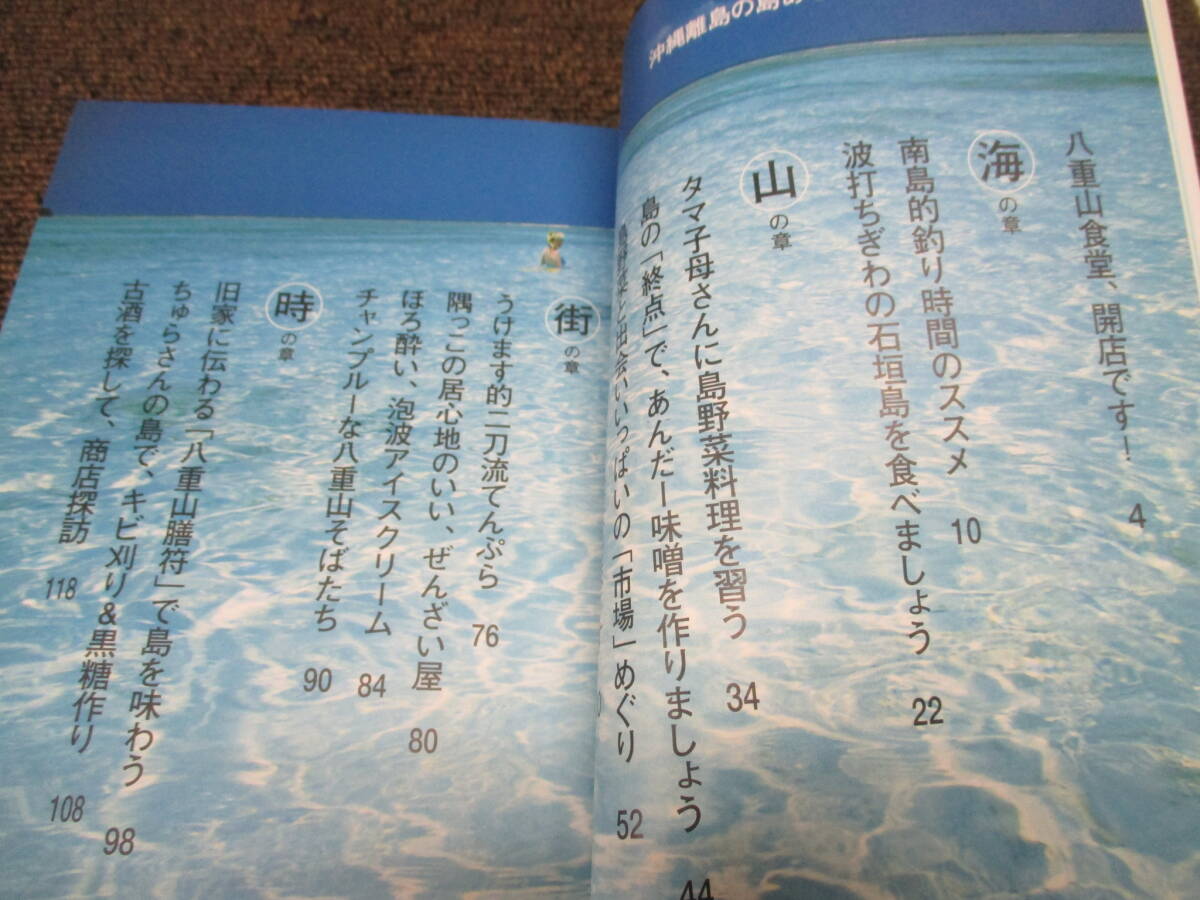 沖縄離島の島
八重山食堂、開店です！ 4
海の章
南島的釣り時間のススメ 10
波打ちぎわの石垣島を食べましょう 22
山の章
タマ子母さんに島野菜料理を習う 34
島の「終点」で、あんだー味噌を作りましょう 44
島野菜と出会いいっぱいの「市場」めぐり 52
街の章
うけます的二刀流てんぷら 76
隅っこの居心地のいい、ぜんざい屋 80
ほろ酔い、泡波アイスクリーム 84
チャンプルーな八重山そばたち 90
時の章
旧家に伝わる「八重山膳符」で島を味わう 98
ちゅらさんの島で、キビ刈り&黒糖作り 108
古酒を探して、商店探訪 118